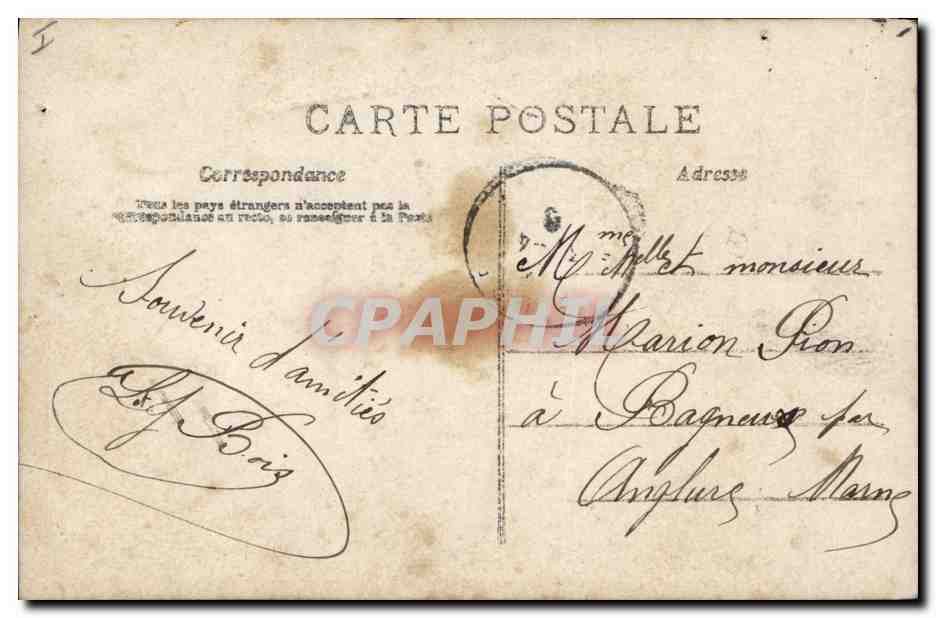 I
CARTE POSTALE
Correspondance
Tous les pays étrangers n'acceptent pas la
correspondance au recto, se renseigner à la Poste
Souvenir d'amitiés
Bois
Adresse
Mme Melle et monsieur
Marion Pion
à Bagneux par
Anglure Marne
CPAPHIL